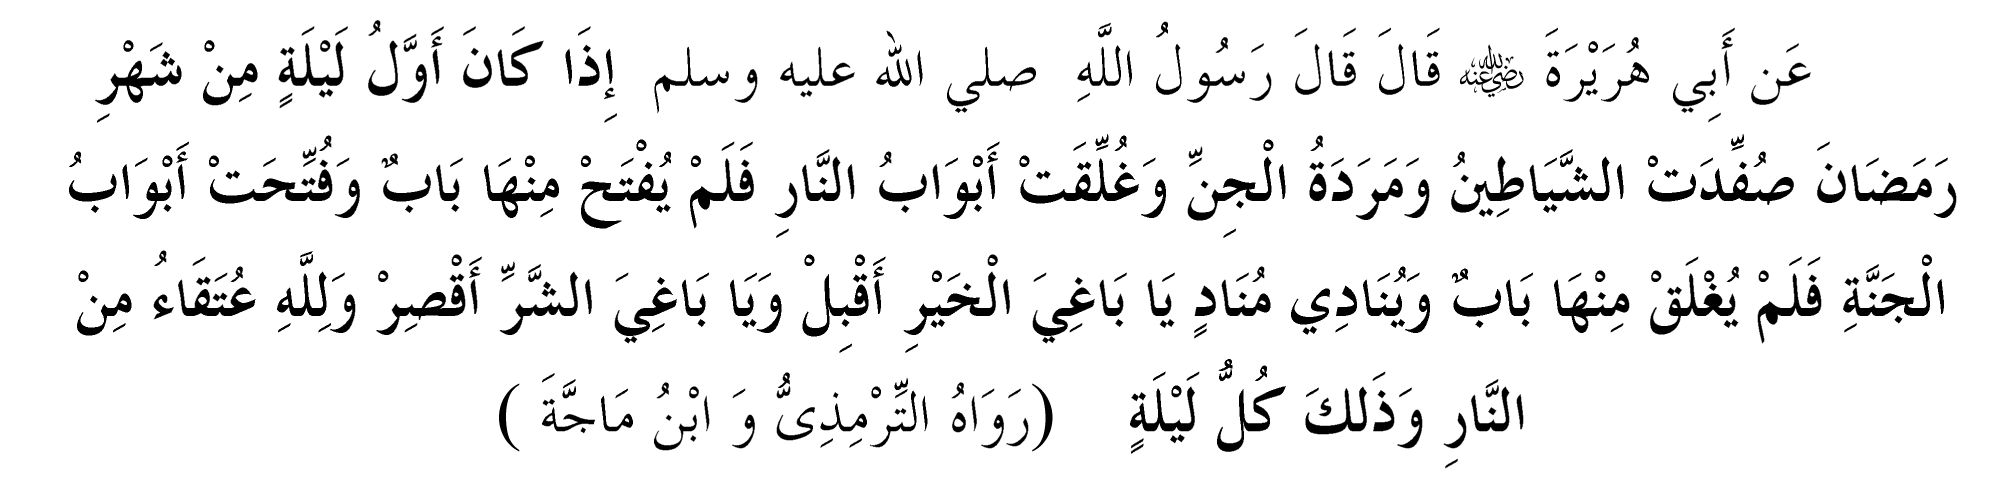 عَن أَبِي هُرَيْرَةَ ﷛ قَالَ قَالَ رَسُولُ اللَّهِ صلي الله عليه وسلم إِذَا كَانَ أَوَّلُ لَيْلَةٍ مِنْ شَهْرِ
رَمَضَانَ صُفِّدَتْ الشَّيَاطِينُ وَمَرَدَةُ الْجِنِّ وَغُلِّقَتْ أَبْوَابُ النَّارِ فَلَمْ يُفْتَحْ مِنْهَا بَابٌ وَفُتِّحَتْ أَبْوَابُ
الْجَنَّةِ فَلَمْ يُغْلَقْ مِنْهَا بَابٌ وَيُنَادِي مُنَادٍ يَا بَاغِيَ الْخَيْرِ أَقْبِلْ وَيَا بَاغِيَ الشَّرِّ أَقْصِرْ وَلِلَّهِ عُتَقَاءُ مِنْ
النَّارِ وَذَلكَ كُلُّ لَيْلَةٍ (رَوَاهُ التِّرْمِذِىُّ وَ ابْنُ مَاجَّةَ )